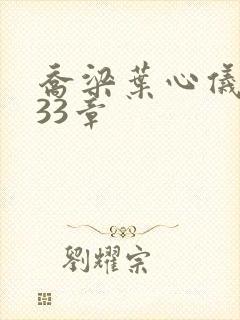 喬梁葉心儀
33章
劉耀宗